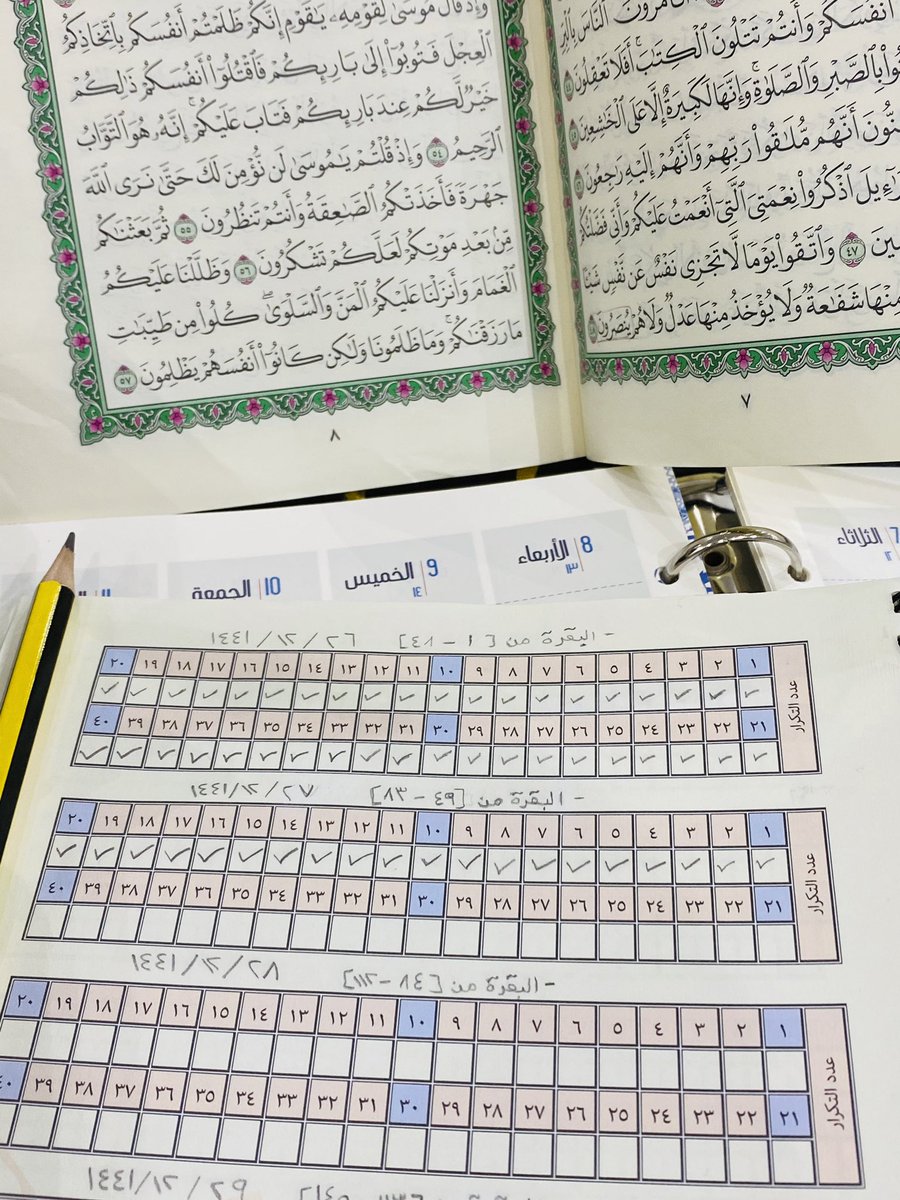 النَّاسَ بِالْبِرِّ
أَنفُسَكُمْ وَأَنتُمْ تَتْلُونَ الْكِتَٰبَ أَفَلَا تَعْقِلُونَ ٤٤
بِالصَّبْرِ وَالصَّلَوٰةِ وَإِنَّهَا لَكَبِيرَةٌ إِلَّا عَلَى الْخَٰشِعِينَ ٤٥
أَنَّهُم مُّلَٰقُوا۟ رَبِّهِمْ وَأَنَّهُمْ إِلَيْهِ رَٰجِعُونَ ٤٦
اذْكُرُوا۟ نِعْمَتِيَ الَّتِي أَنْعَمْتُ عَلَيْكُمْ وَأَنِّي فَضَّلْتُكُمْ
٤٧ وَاتَّقُوا۟ يَوْمًا لَّا تَجْزِي نَفْسٌ عَن نَّفْسٍ شَيْـًٔا
مِنْهَا شَفَٰعَةٌ وَلَا يُؤْخَذُ مِنْهَا عَدْلٌ وَلَا هُمْ يُنصَرُونَ ٤٨
٧
وَإِذْ قَالَ مُوسَىٰ لِقَوْمِهِۦ يَٰقَوْمِ إِنَّكُمْ ظَلَمْتُمْ أَنفُسَكُم بِاتِّخَاذِكُمُ
الْعِجْلَ فَتُوبُوٓا۟ إِلَىٰ بَارِئِكُمْ فَاقْتُلُوٓا۟ أَنفُسَكُمْ ذَٰلِكُمْ
خَيْرٌ لَّكُمْ عِندَ بَارِئِكُمْ فَتَابَ عَلَيْكُمْ إِنَّهُۥ هُوَ التَّوَّابُ
الرَّحِيمُ ٥٤ وَإِذْ قُلْتُمْ يَٰمُوسَىٰ لَن نُّؤْمِنَ لَكَ حَتَّىٰ نَرَى اللَّهَ
جَهْرَةً فَأَخَذَتْكُمُ الصَّٰعِقَةُ وَأَنتُمْ تَنظُرُونَ ٥٥ ثُمَّ بَعَثْنَٰكُم
مِّنۢ بَعْدِ مَوْتِكُمْ لَعَلَّكُمْ تَشْكُرُونَ ٥٦ وَظَلَّلْنَا عَلَيْكُمُ
الْغَمَامَ وَأَنزَلْنَا عَلَيْكُمُ الْمَنَّ وَالسَّلْوَىٰ كُلُوا۟ مِن طَيِّبَٰتِ
مَا رَزَقْنَٰكُمْ وَمَا ظَلَمُونَا وَلَٰكِن كَانُوٓا۟ أَنفُسَهُمْ يَظْلِمُونَ ٥٧
٨
7 الثلاثاء ١٢
8 الأربعاء ١٣
9 الخميس ١٤
10 الجمعة
- البقرة من [١ - ٤٨] ١٤٤١/١٢/٢٦
عدد التكرار
١ ٢ ٣ ٤ ٥ ٦ ٧ ٨ ٩ ١٠ ١١ ١٢ ١٣ ١٤ ١٥ ١٦ ١٧ ١٨ ١٩ ٢٠
٢١ ٢٢ ٢٣ ٢٤ ٢٥ ٢٦ ٢٧ ٢٨ ٢٩ ٣٠ ٣١ ٣٢ ٣٣ ٣٤ ٣٥ ٣٦ ٣٧ ٣٨ ٣٩ ٤٠
- البقرة من [٤٩ - ٨٣] ١٤٤١/١٢/٢٧
عدد التكرار
١ ٢ ٣ ٤ ٥ ٦ ٧ ٨ ٩ ١٠ ١١ ١٢ ١٣ ١٤ ١٥ ١٦ ١٧ ١٨ ١٩ ٢٠
٢١ ٢٢ ٢٣ ٢٤ ٢٥ ٢٦ ٢٧ ٢٨ ٢٩ ٣٠ ٣١ ٣٢ ٣٣ ٣٤ ٣٥ ٣٦ ٣٧ ٣٨ ٣٩ ٤٠
- البقرة من [٨٤ - ١١٢] ١٤٤١/١٢/٢٨
عدد التكرار
١ ٢ ٣ ٤ ٥ ٦ ٧ ٨ ٩ ١٠ ١١ ١٢ ١٣ ١٤ ١٥ ١٦ ١٧ ١٨ ١٩ ٢٠
٢١ ٢٢ ٢٣ ٢٤ ٢٥ ٢٦ ٢٧ ٢٨ ٢٩ ٣٠ ٣١ ٣٢ ٣٣ ٣٤ ٣٥ ٣٦ ٣٧ ٣٨ ٣٩ ٤٠
١٤٤١/١٢/٢٩